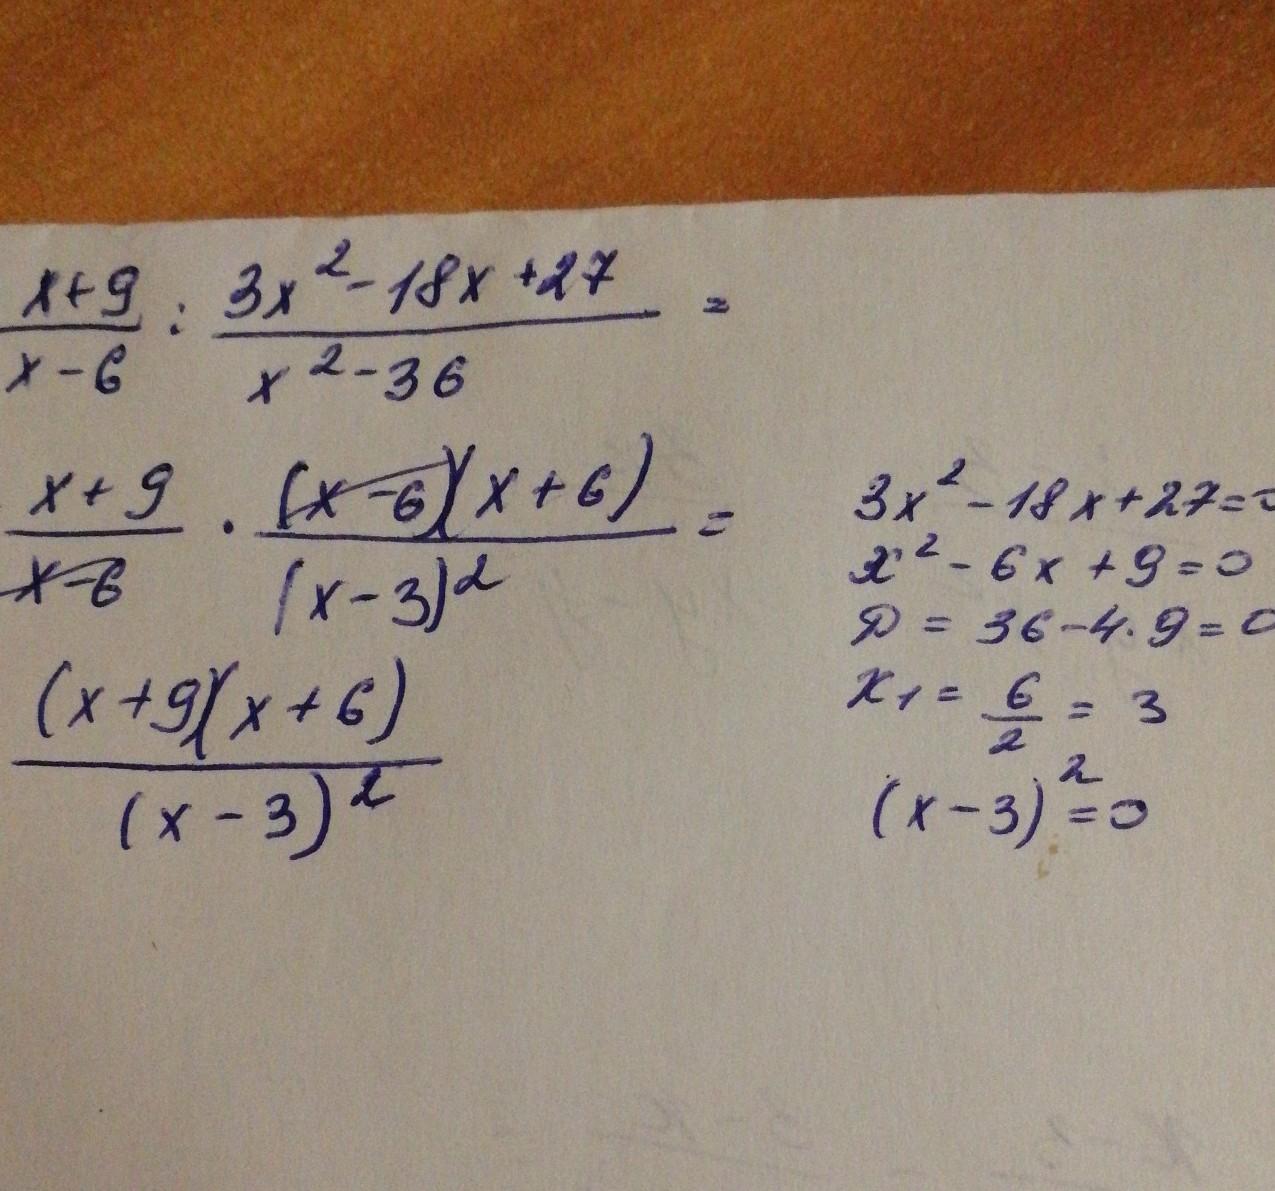 x+9/x-6 : 3x²-18x+27/x²-36 =
x+9/x-6 · (x-6)(x+6)/(x-3)² =
(x+9)(x+6)/(x-3)²
3x²-18x+27=0
x²-6x+9=0
D=36-4·9=0
x₁=6/2=3
(x-3)²=0